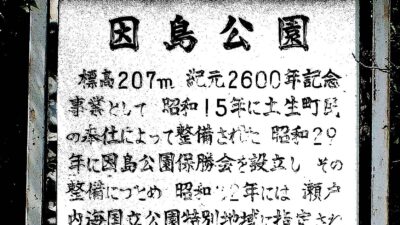 因島公園
標高207m 紀元2600年記念
事業として 昭和15年に土生町民
の奉仕によって整備された 昭和29
年に因島公園保勝会を設立し その
整備につとめ 昭和32年には 瀬戸
内海国立公園特別地域に指定され